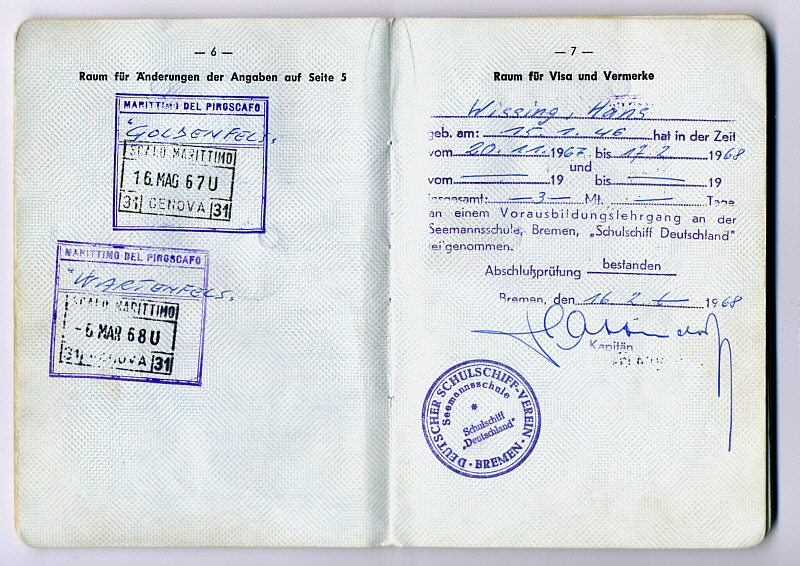 — 6 —
Raum für Änderungen der Angaben auf Seite 5
MARITTIMO DEL PIROSCAFO
"GOLDENFELS.
SCALO MARITTIMO
16. MAG 67 U
31 GENOVA 31
MARITTIMO DEL PIROSCAFO
"WARTENFELS.
SCALO MARITTIMO
-6 MAR 68 U
31 GENOVA 31
— 7 —
Raum für Visa und Vermerke
Wissing, Hans
geb. am: 15. 1. 46 hat in der Zeit
vom 20. 11. 1967 bis 17. 2 1968
und
vom — 19 bis — 19
insgesamt: —3— Mt. — Tage
an einem Vorausbildungslehrgang an der
Seemannsschule, Bremen, „Schulschiff Deutschland"
teilgenommen.
Abschlußprüfung bestanden
Bremen, den 16. 2. 1968
Kapitän
DEUTSCHER SCHULSCHIFF-VEREIN
Seemannsschule
Schulschiff
„Deutschland"
· BREMEN ·